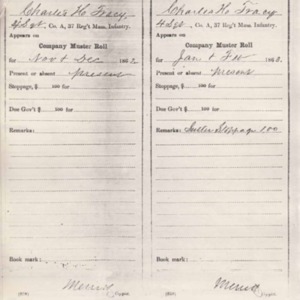 Charles H. Tracy
4 Sgt., Co. A, 37 Reg't Mass. Infantry.
Appears on
Company Muster Roll
for Nov & Dec, 186
Present or absent present
Stoppage, $ 100 for
Due Gov't $ 100 for
Remarks:
Book mark:
Charles H. Tracy
4 Sgt., Co. A, 37 Reg't Mass. Infantry.
Appears on
Company Muster Roll
for Jan & Feb, 1863.
Present or absent Present
Stoppage, $ 100 for
Due Gov't $ 100 for
Remarks: Sutler Stoppage 1.00
Book mark: